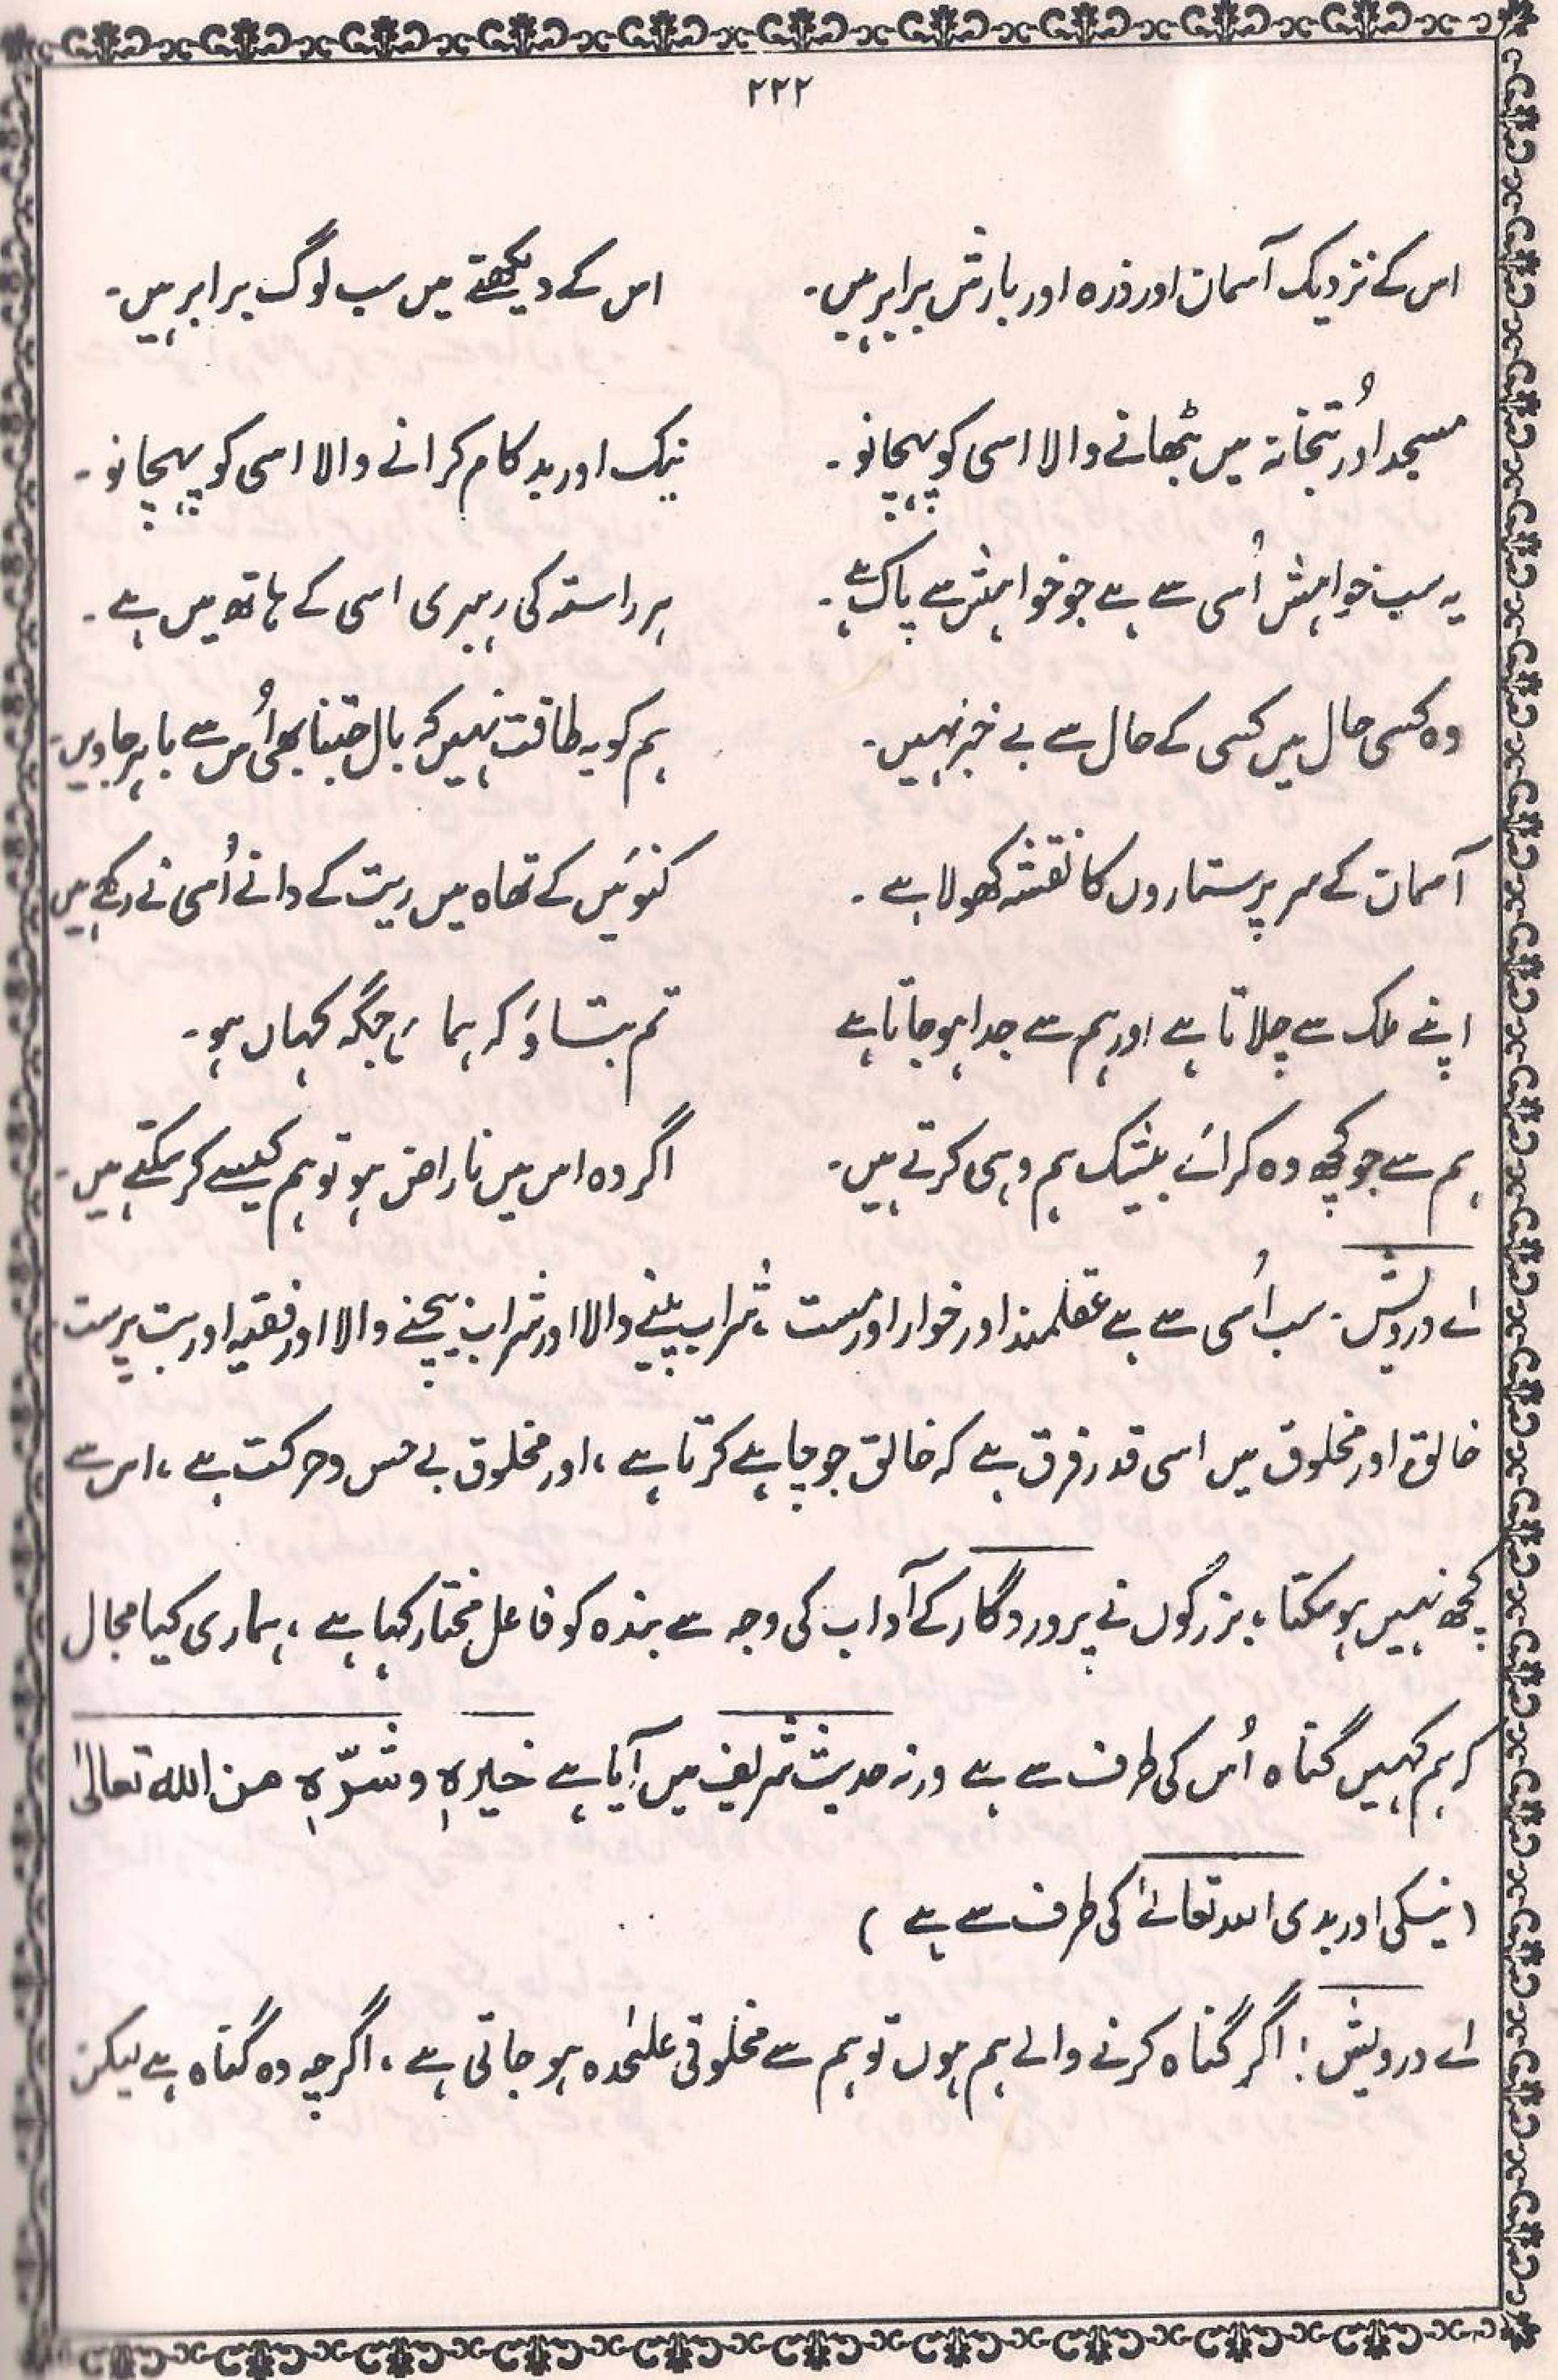 ۲۲۲
اس کے نزدیک آسمان اور ذرہ اور بارش برابر ہیں۔ اس کے دیکھتے میں سب لوگ برابر ہیں۔
مسجد اور بُتخانہ میں بٹھانے والا اسی کو پہچانو۔ نیک اور بد کام کرانے والا اسی کو پہچانو۔
یہ سب خواہش اُسی سے ہے جو خواہش سے پاک ہے۔ ہر راستہ کی رہبری اسی کے ہاتھ میں ہے۔
وہ کسی حال میں کسی کے حال سے بے خبر نہیں۔ ہم کو یہ طاقت نہیں کہ بال جتنا بھی اُس سے باہر جاویں۔
آسمان کے سر پر ستاروں کا نقشہ کھولا ہے۔ کنوئیں کے تھاہ میں ریت کے دانے اُسی نے رکھے ہیں
اپنے ملک سے چلاتا ہے اور ہم سے جدا ہو جاتا ہے تم بتاؤ کہ ہما جگہ کہاں ہو۔
ہم سے جو کچھ وہ کرائے بیشک ہم وہی کرتے ہیں۔ اگر وہ اس میں ناراض ہو تو ہم کیسے کر سکتے ہیں۔
اے درویش۔ سب اُسی سے ہے عقلمند اور خوار اور مست، شراب پینے والا اور شراب بیچنے والا اور فقیہ اور بت پرست۔
خالق اور مخلوق میں اسی قدر فرق ہے کہ خالق جو چاہے کرتا ہے، اور مخلوق بے حس و حرکت ہے، اس سے
کچھ نہیں ہو سکتا، بزرگوں نے پروردگار کے آداب کی وجہ سے بندہ کو فاعل مختار کہا ہے، ہماری کیا مجال
کہ ہم کہیں گناہ اُس کی طرف سے ہے ورنہ حدیث شریف میں آیا ہے خیرہٖ و شرّہٖ من اللہ تعالیٰ
(نیکی اور بدی اللہ تعالےٰ کی طرف سے ہے)
اے درویش! اگر گناہ کرنے والے ہم ہوں تو ہم سے مخلوقی علیٰحدہ ہو جاتی ہے، اگرچہ وہ گناہ ہے لیکن